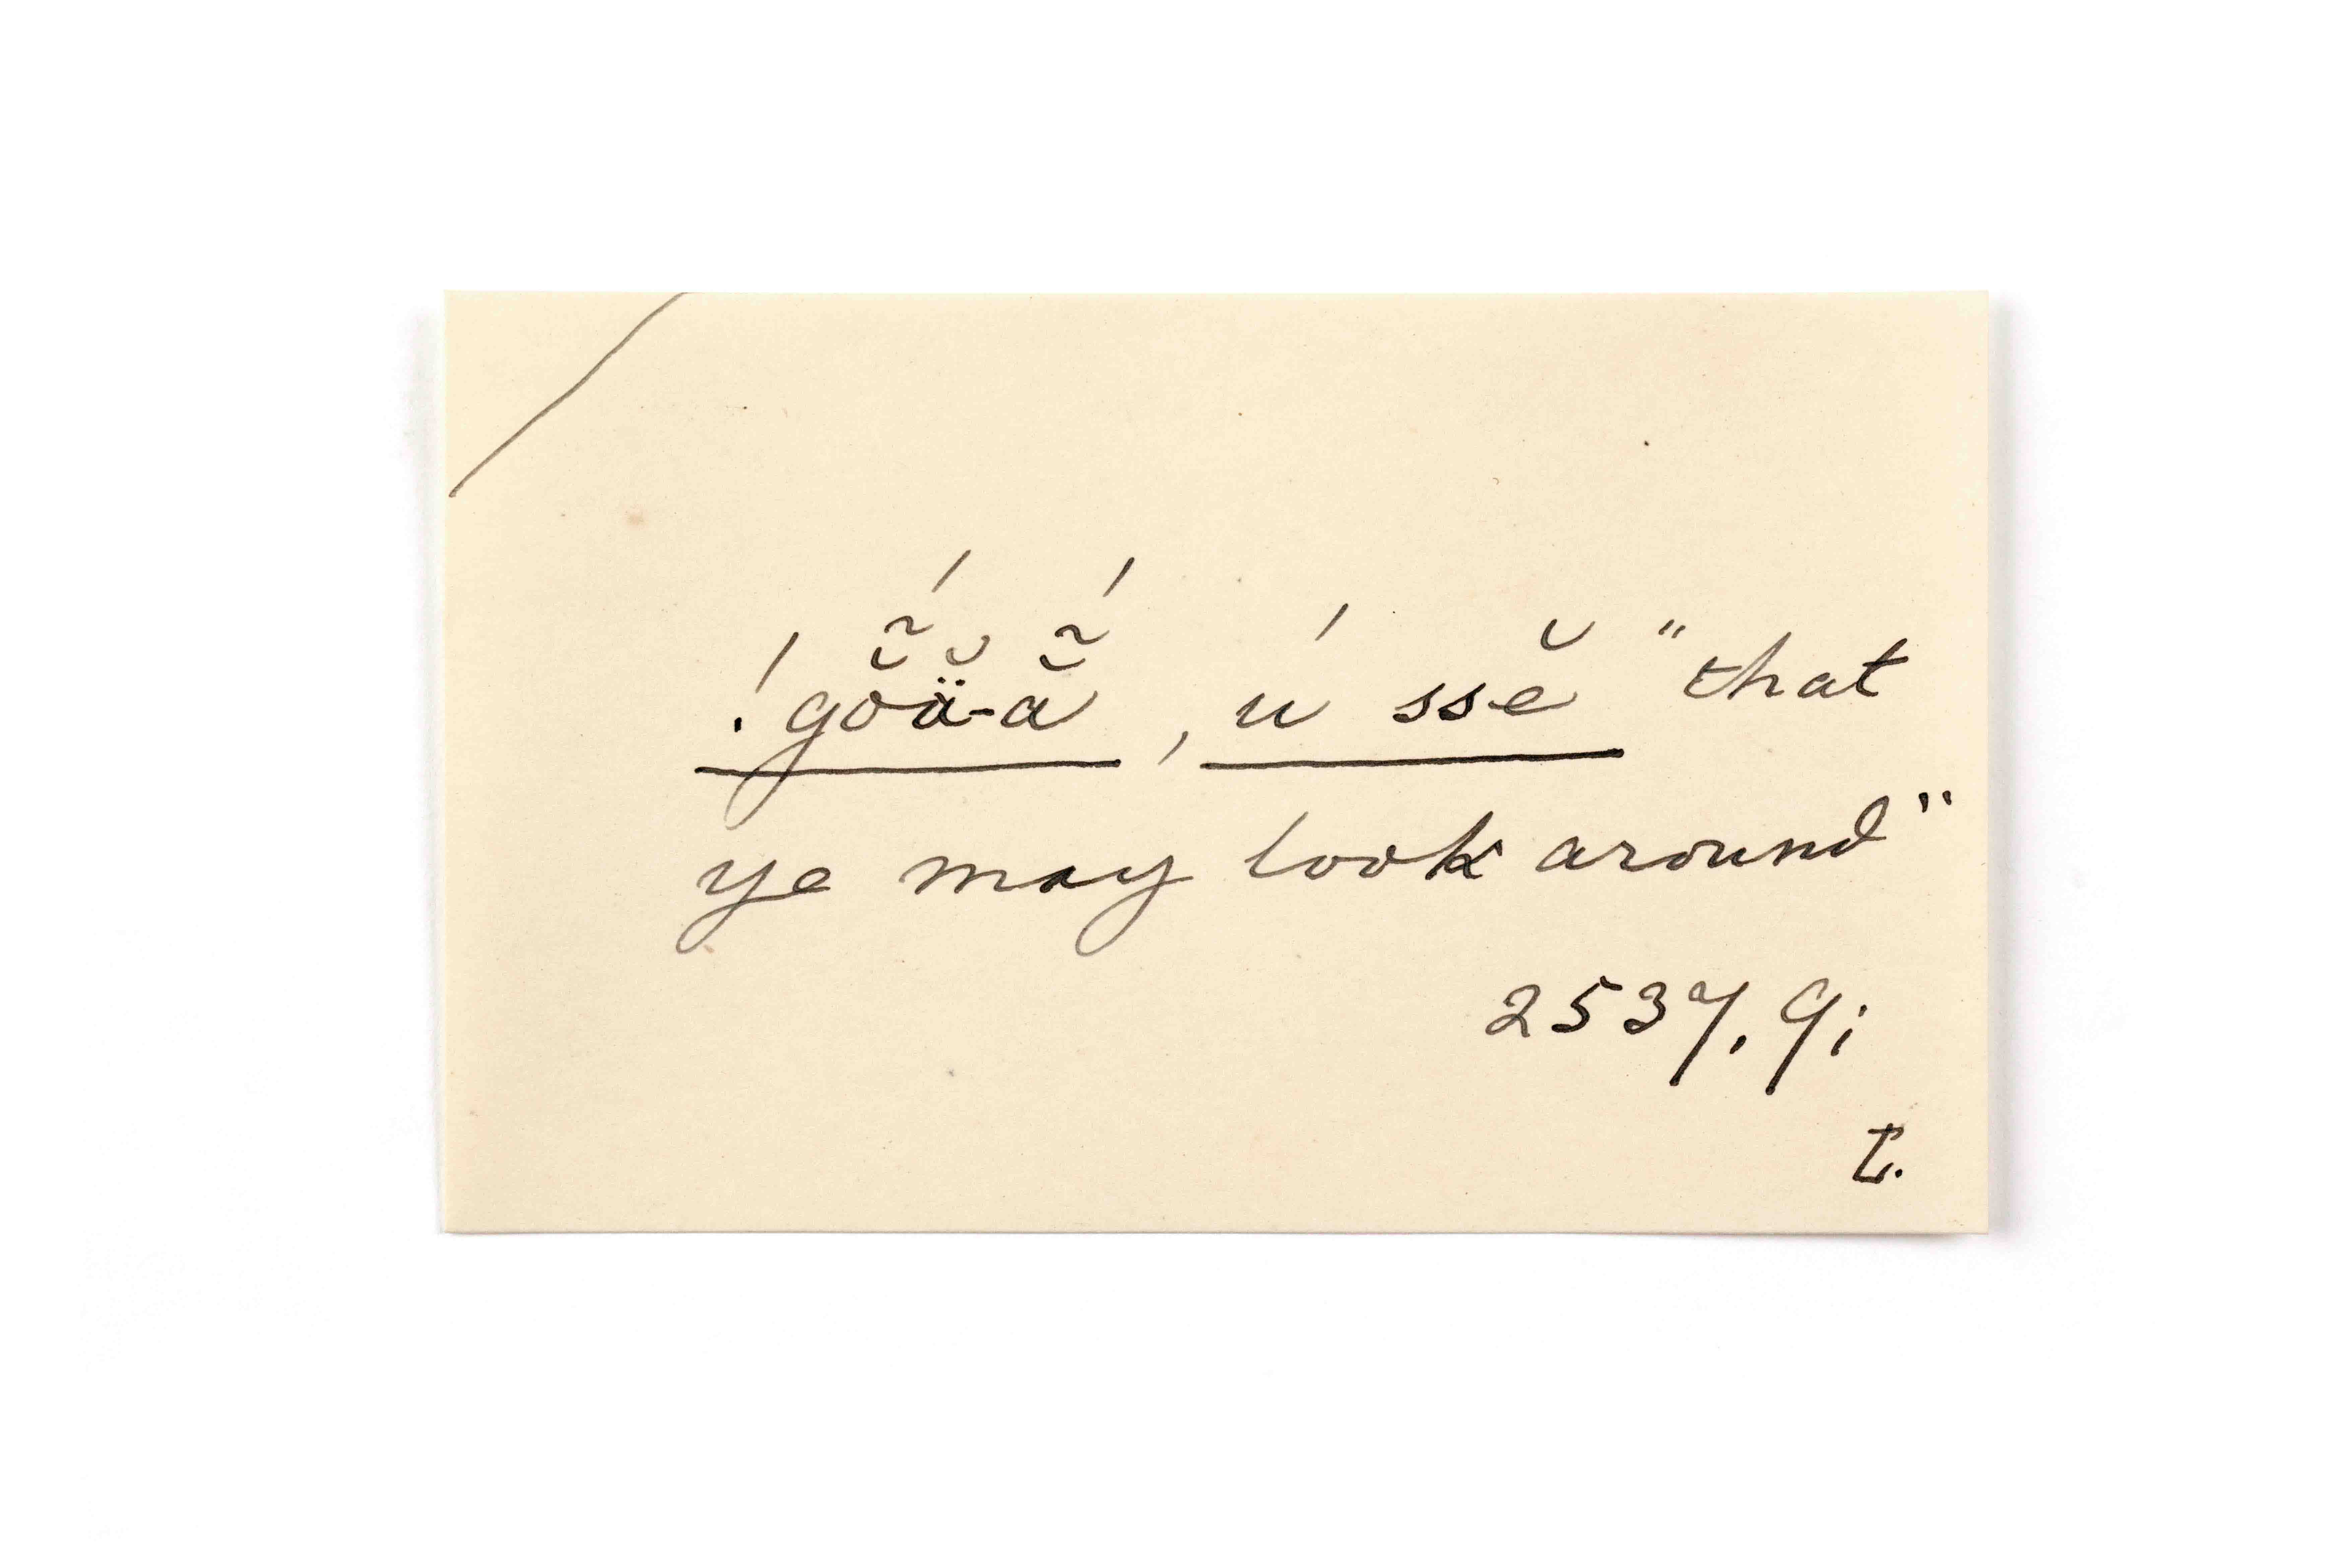 !gŏ̴́ä̆-ắ̴, ú ssĕ "that
ye may look around"
2537, 9;
L.